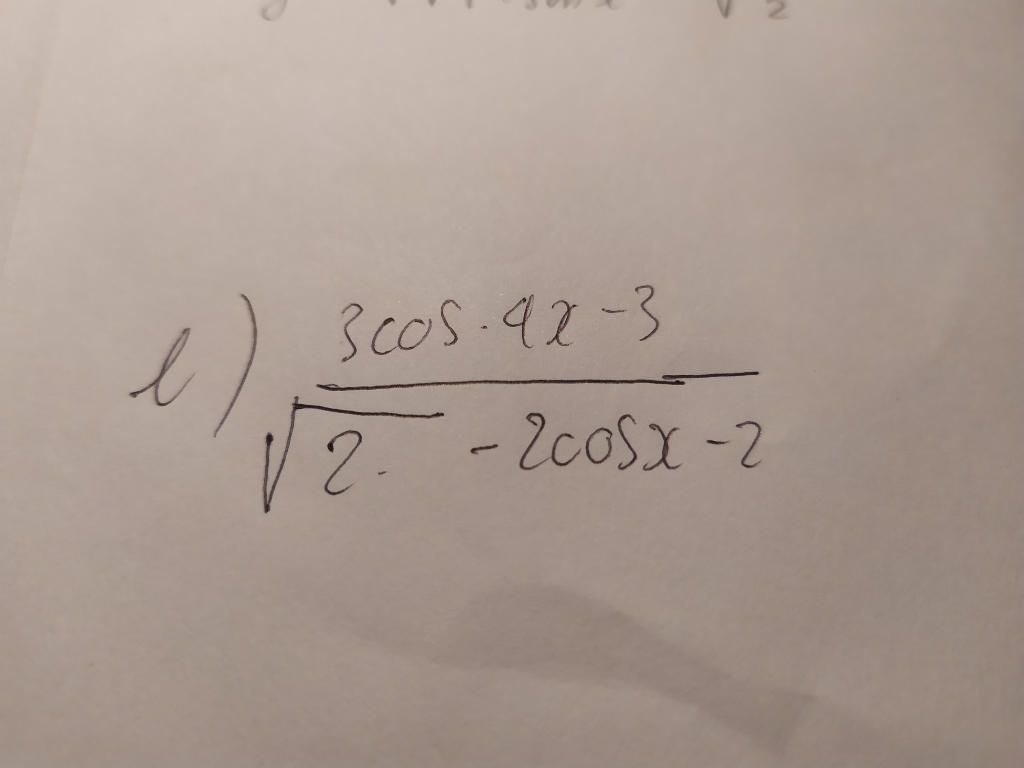 l) 3cos·4x-3
√2. -2cosx-2